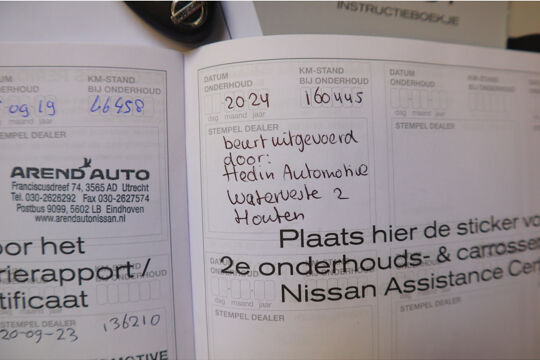 INSTRUCTIEBOEKJE
DATUM ONDERHOUD
KM-STAND BIJ ONDERHOUD
09 19
66458
maand jaar
STEMPEL DEALER
AREND AUTO
Franciscusdreef 74, 3565 AD Utrecht
Tel. 030-2626292 Fax 030-2627574
Postbus 9099, 5602 LB Eindhoven
www.arendautonissan.nl
oor het
rierapport /
tificaat
20-09-23
136210
DATUM ONDERHOUD
KM-STAND BIJ ONDERHOUD
2024
160445
dag maand jaar
STEMPEL DEALER
beurt uitgevoerd
door:
Hedin Automotive
Waterveste 2
Houten
DATUM ONDERHOUD
KM-STAND BIJ ONDERHOUD
dag maand jaar
STEMPEL DEALER
Plaats hier de sticker vo
2e onderhouds- & carrosser
Nissan Assistance Cer
dag maand jaar
STEMPEL DEALER